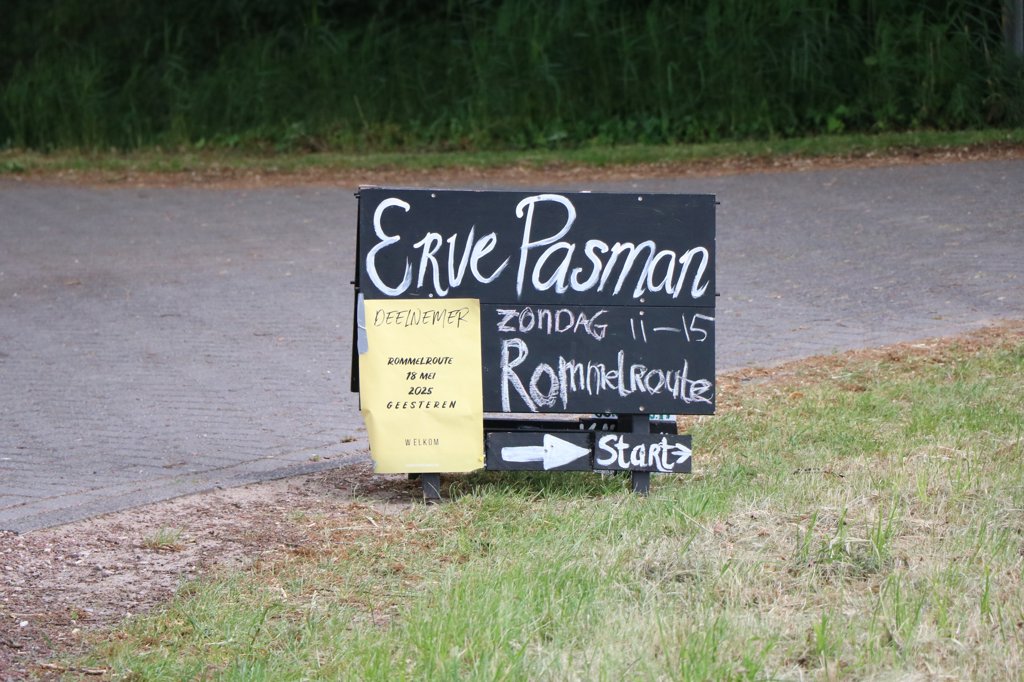 Erve Pasman
ZONDAG 11-15
Rommelroute
DEELNEMER
ROMMELROUTE
18 MEI
2025
GEESTEREN
WELKOM
Start